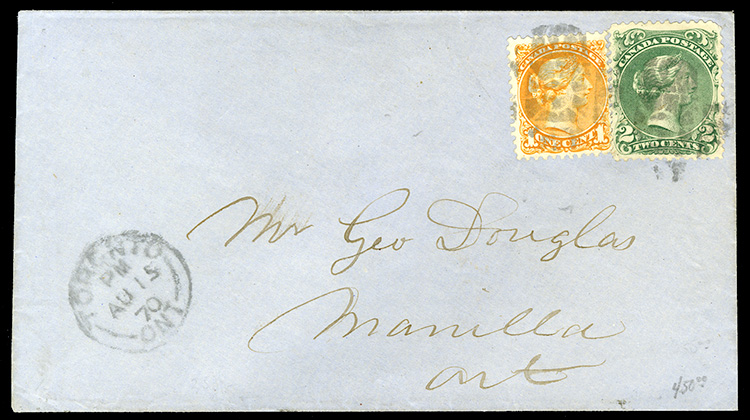 CANADA POSTAGE
ONE CENT 1
CANADA POSTAGE
2 TWO CENTS 2
Mr Geo Douglas
Manilla
Ont
TORONTO
PM
AU 15
70
ONT